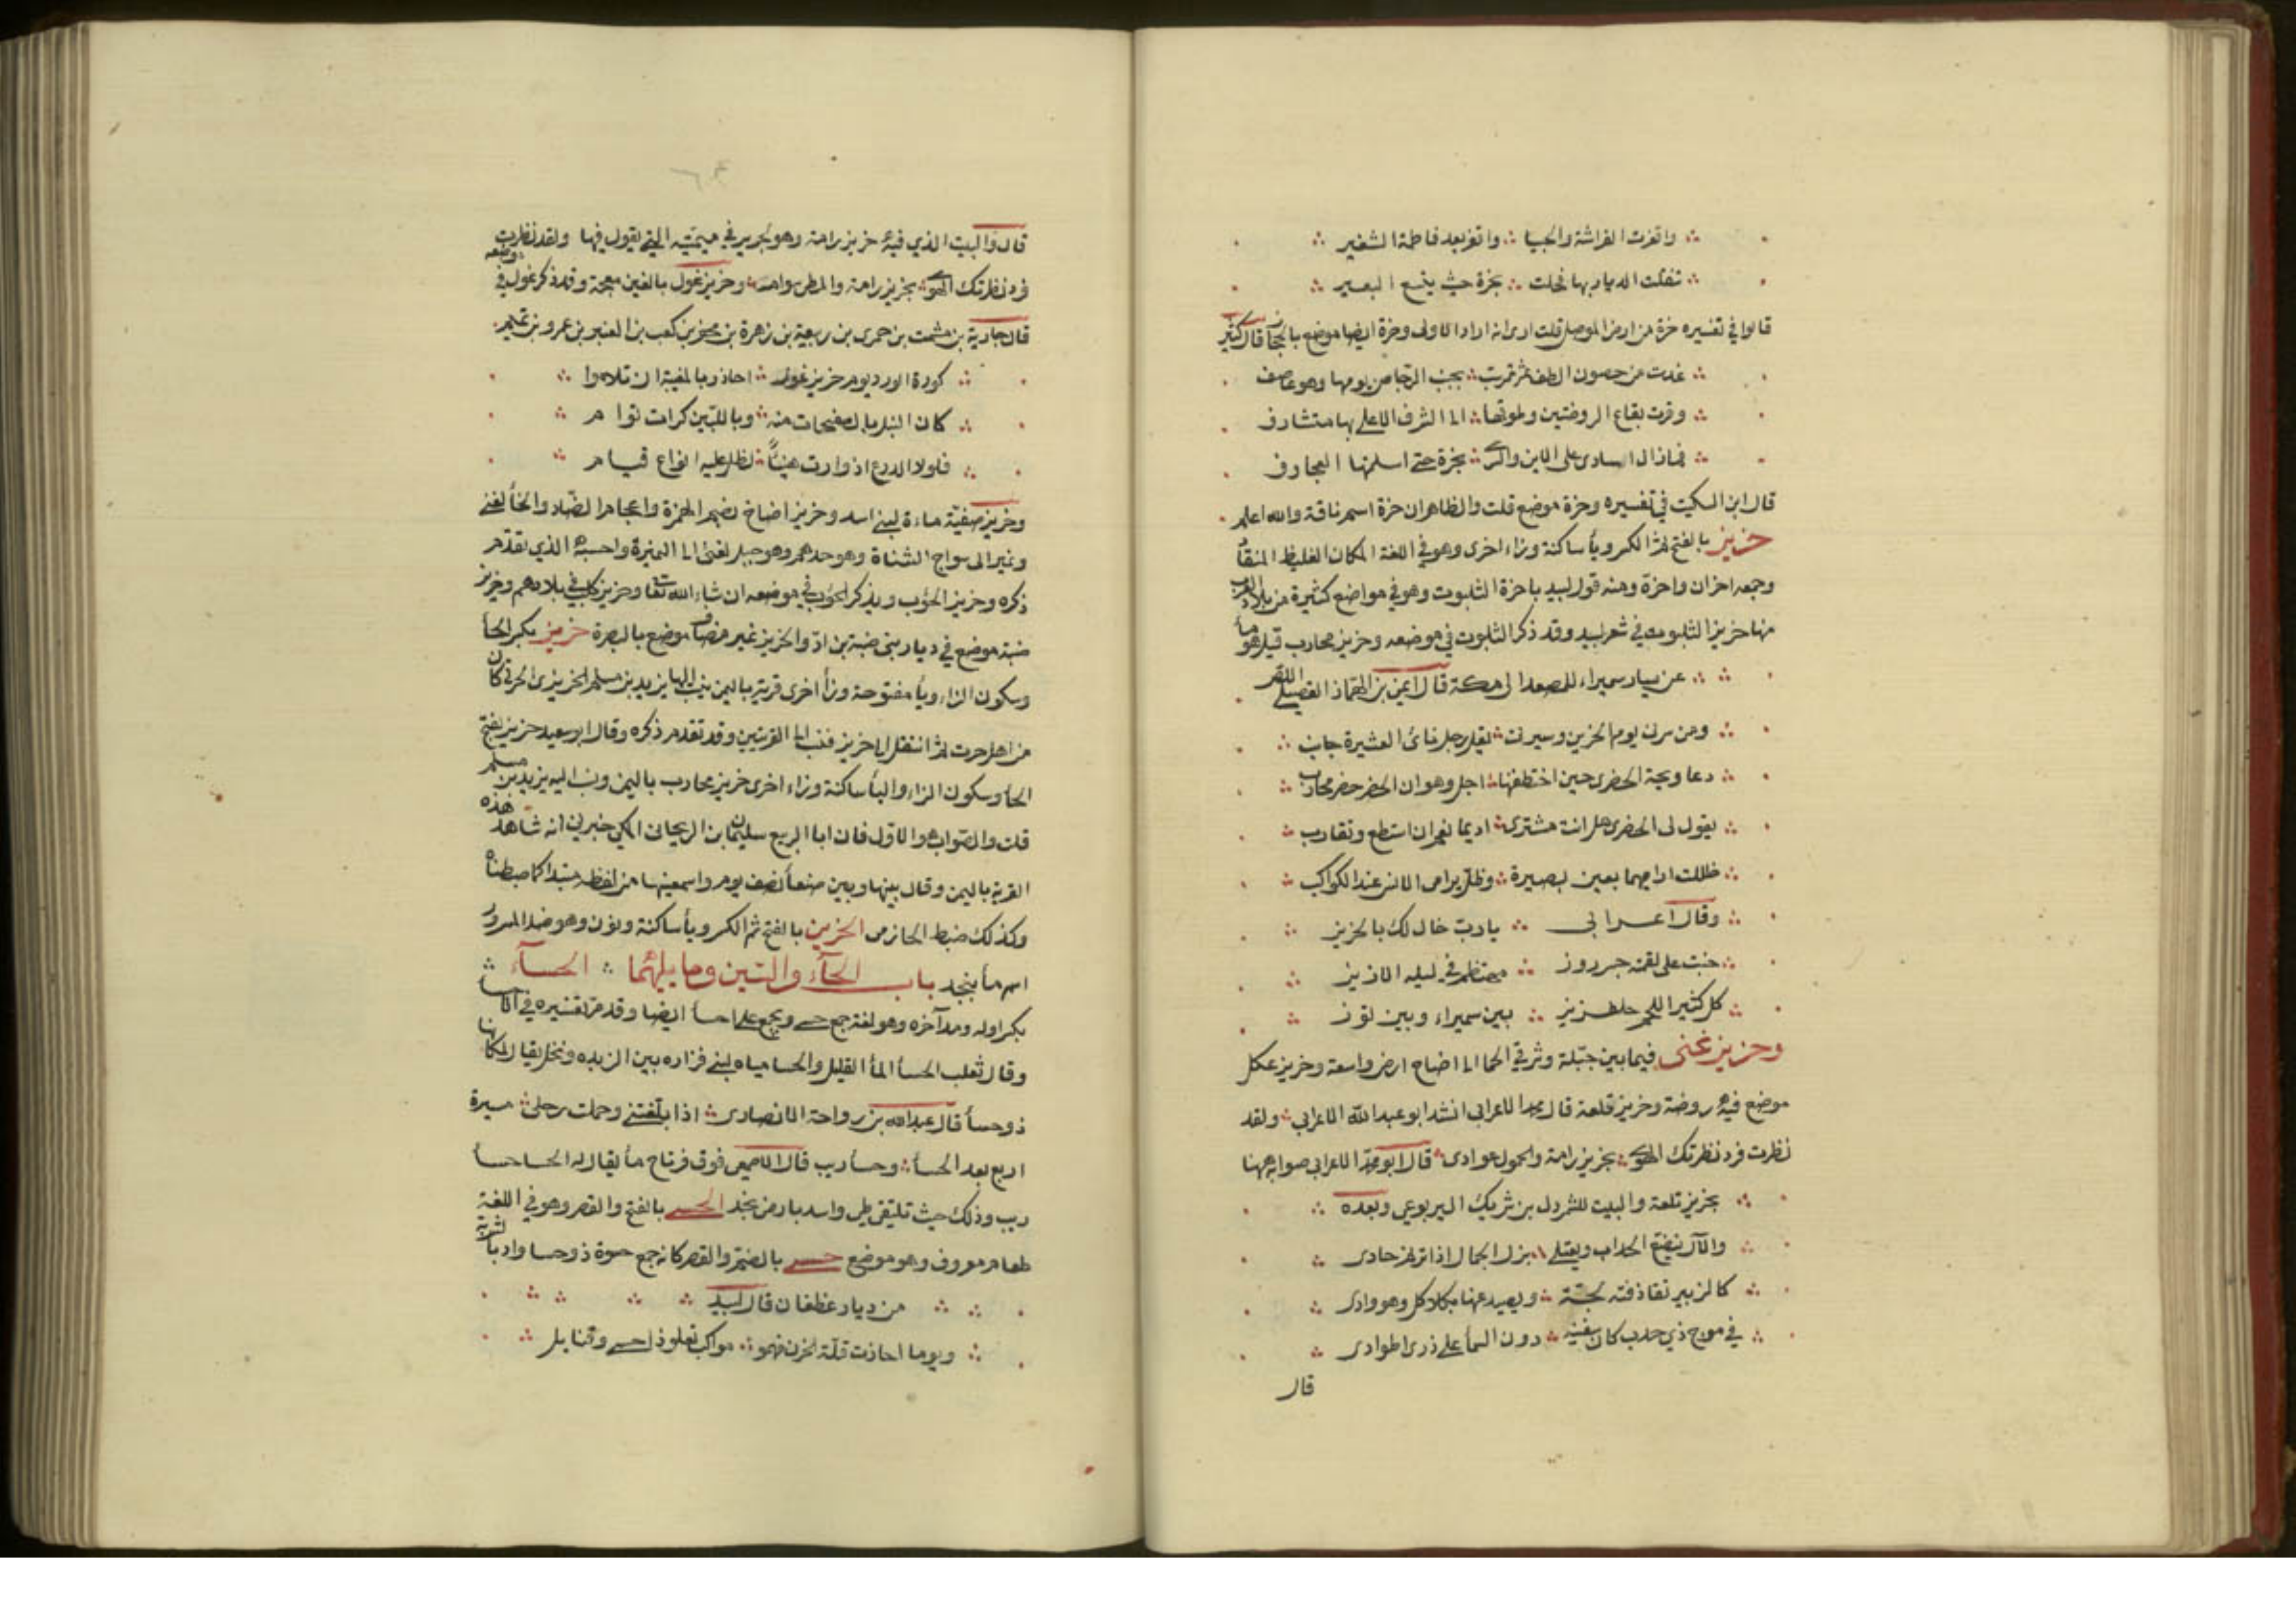 واقفرت الفراشة والحبيا واقفر بعد فاطمة الشغير
تنقلت الديار بها فحلت بحزة حيث ينتسع البعير
قالوا في تفسيره حزة من ارض الموصل قلت ادى انه اراد الاولى وحزة ايضا موضع بالحجاز قال كثير
غدت من خصوص الطف ثم تمرست بجنب الرحا من يومها وهو عاصف
ومرت بقاع الروضتين وطرفها الى الشرف الاعلى بها متشارف
فما زال اسادى على الاين والسرى بحزة حتى اسلمتها العجارف
قال ابن السكيت في تفسيره وحزة موضع قلت والظاهر ان حزة اسم ناقة والله اعلم
حزيز بالفتح ثم الكسر ويأ ساكنة وزاء اخرى وهو في اللغة المكان الغليظ المنقاد
وجمعه احزان واحزة ومنه قول لبيد باحزة الثلبوت وهو في مواضع كثيرة من بلاد العرب
منها حزيز الثلبوت في شعر لبيد وقد ذكر الثلبوت في موضعه وحزيز محارب قيل هو مأ
عن يسار سميراء للمصعد الى مكة قال ايمن بن الهماز العقيلي اللص
ومن يرنى يوم الحزيز وسيرتى يقل رجل نائى العشيرة جانب
دعا ويحه الحضرى حين اختطفتها اجل وهو ان الحضر حضر محارب
يقول لى الحضرى هل انت مشترى اديما نعم ان استطع وتقارب
ظللت اراعيها بعين بصيرة وظل يراعى الانس عند الكواكب
وقال اعرابى يا رب خال لك بالحزيز
خب على لقمته جروز مهتضم في ليلة الازيز
كل كثير اللحم جلفزيز بين سميراء وبين توز
وحزيز غنى فيما بين جبلة وشرقي الحما الى اضاخ ارض واسعة وحزيز عكل
موضع فيه روضة وحزيز قلعة قال محمد الاعرابي انشد ابو عبد الله الاعرابي ولقد
نظرت فرد نظرتك الهوى بحزيز رامة والحمول غوادى قال ابو محمد الاعرابي صوابه ههنا
بحزيز تلعة والبيت للشمردل بن شريك اليربوعي وبعده
والآل يتضع الحداب ويعتلى بزل الجمال اذا ترنم حادى
كالزبير تقاذفته لجة ويصد عنها بكلاكل وهوادى
في موج ذي حدب كان سفينه دون السمأ على ذرى اطوادى
قال
قال والبيت الذي فيه حزيز رامة وهو لجرير في ميميته التي يقول فيها ولقد نظرت
فرد نظرتك الهوى بحزيز رامة والمطى سوامـ وحزيز غول بالغين معجمة وقد ذكر غول في موضعه
قال جارية بن مشمت بن حمرى بن ربيعة بن زهرة بن مجفر بن كعب بن العنبر بن عمرو بن تميم
كورة الورد يوم حزيز غول احاذر بالمغيبة ان تلاموا
كان النبل بالصفحات منه وبالليتين كرات توام
فلولا الدرع اذ وارت هنيا لظل عليه انواع قيام
وحزيز صفية ماءة لبني اسد وحزيز اضاخ بضم الهمزة واعجام الضاد والخأ لغنى
ونمير الى سواج الشتاة وهو حدهم وهو جبل لغنى الى النميرة واحسبه الذي تقدم
ذكره وحزيز الحوب ويذكر الحوب في موضعه ان شاء الله تعا وحزيز كلب في بلادهم وحزيز
ضبة موضع في ديار بنى ضبة بن ادّ والحزيز غير مضاف موضع بالبصرة حزيز بكسر الحأ
وسكون الزاء ويأ مفتوحة وزأ اخرى قرية باليمن ينسب اليها يزيد بن مسلم الحزيزى الجرتى كان
من اهل جرت ثم انتقل الى حزيز فنسب الى القريتين وقد تقدم ذكره وقال ابو سعيد حزيز بفتح
الحأ وسكون الزاء واليأ ساكنة وزاء اخرى حزيز محارب باليمن ونسب اليه يزيد بن مسلم
قلت والصواب هو الاول فان ابا الربيع سليمان ابن الريحانى المكي خبرنى انه شاهد هذه
القرية باليمن وقال بينها وبين صنعأ نصف يوم واسمعنيها من لفظه مبتدا كما ضبطناه
وكذلك ضبط الحازمى الحزين بالفتح ثم الكسر ويأ ساكنة ونون وهو ضد المسرور
اسم مأ بنجد باب الحآء والسين وما يليهما الحسآء
بكسر اوله ومد آخره وهو لغة جمع حسى ويجمع على احسأ ايضا وقد مر تفسيره في الاحسا
وقال ثعلب الحسأ المأ القليل والحسا مياه لبني فزاره بين الربذه ونخل يقال لمكانها
ذو حسأ قال عبد الله بن رواحة الانصارى اذا بلغتني وحملت رحلى مسيرة
اربع بعد الحسأ وحسأ ريب قال الاصمعى فوق فرتاج مأ يقال له الحسا حسأ
ريب وذلك حيث تلتقى طى واسد بارض نجد الحسى بالفتح والقصر وهو في اللغة
طعام معروف وهو موضع حسى بالضم والقصر كانه جمع حسوة ذو حسا واد بأ لشربة
من ديار غطفان قال لبيد
ويوما اجازت قلة الحزن منهمو مواكب تعلو ذا حسى وقنابل